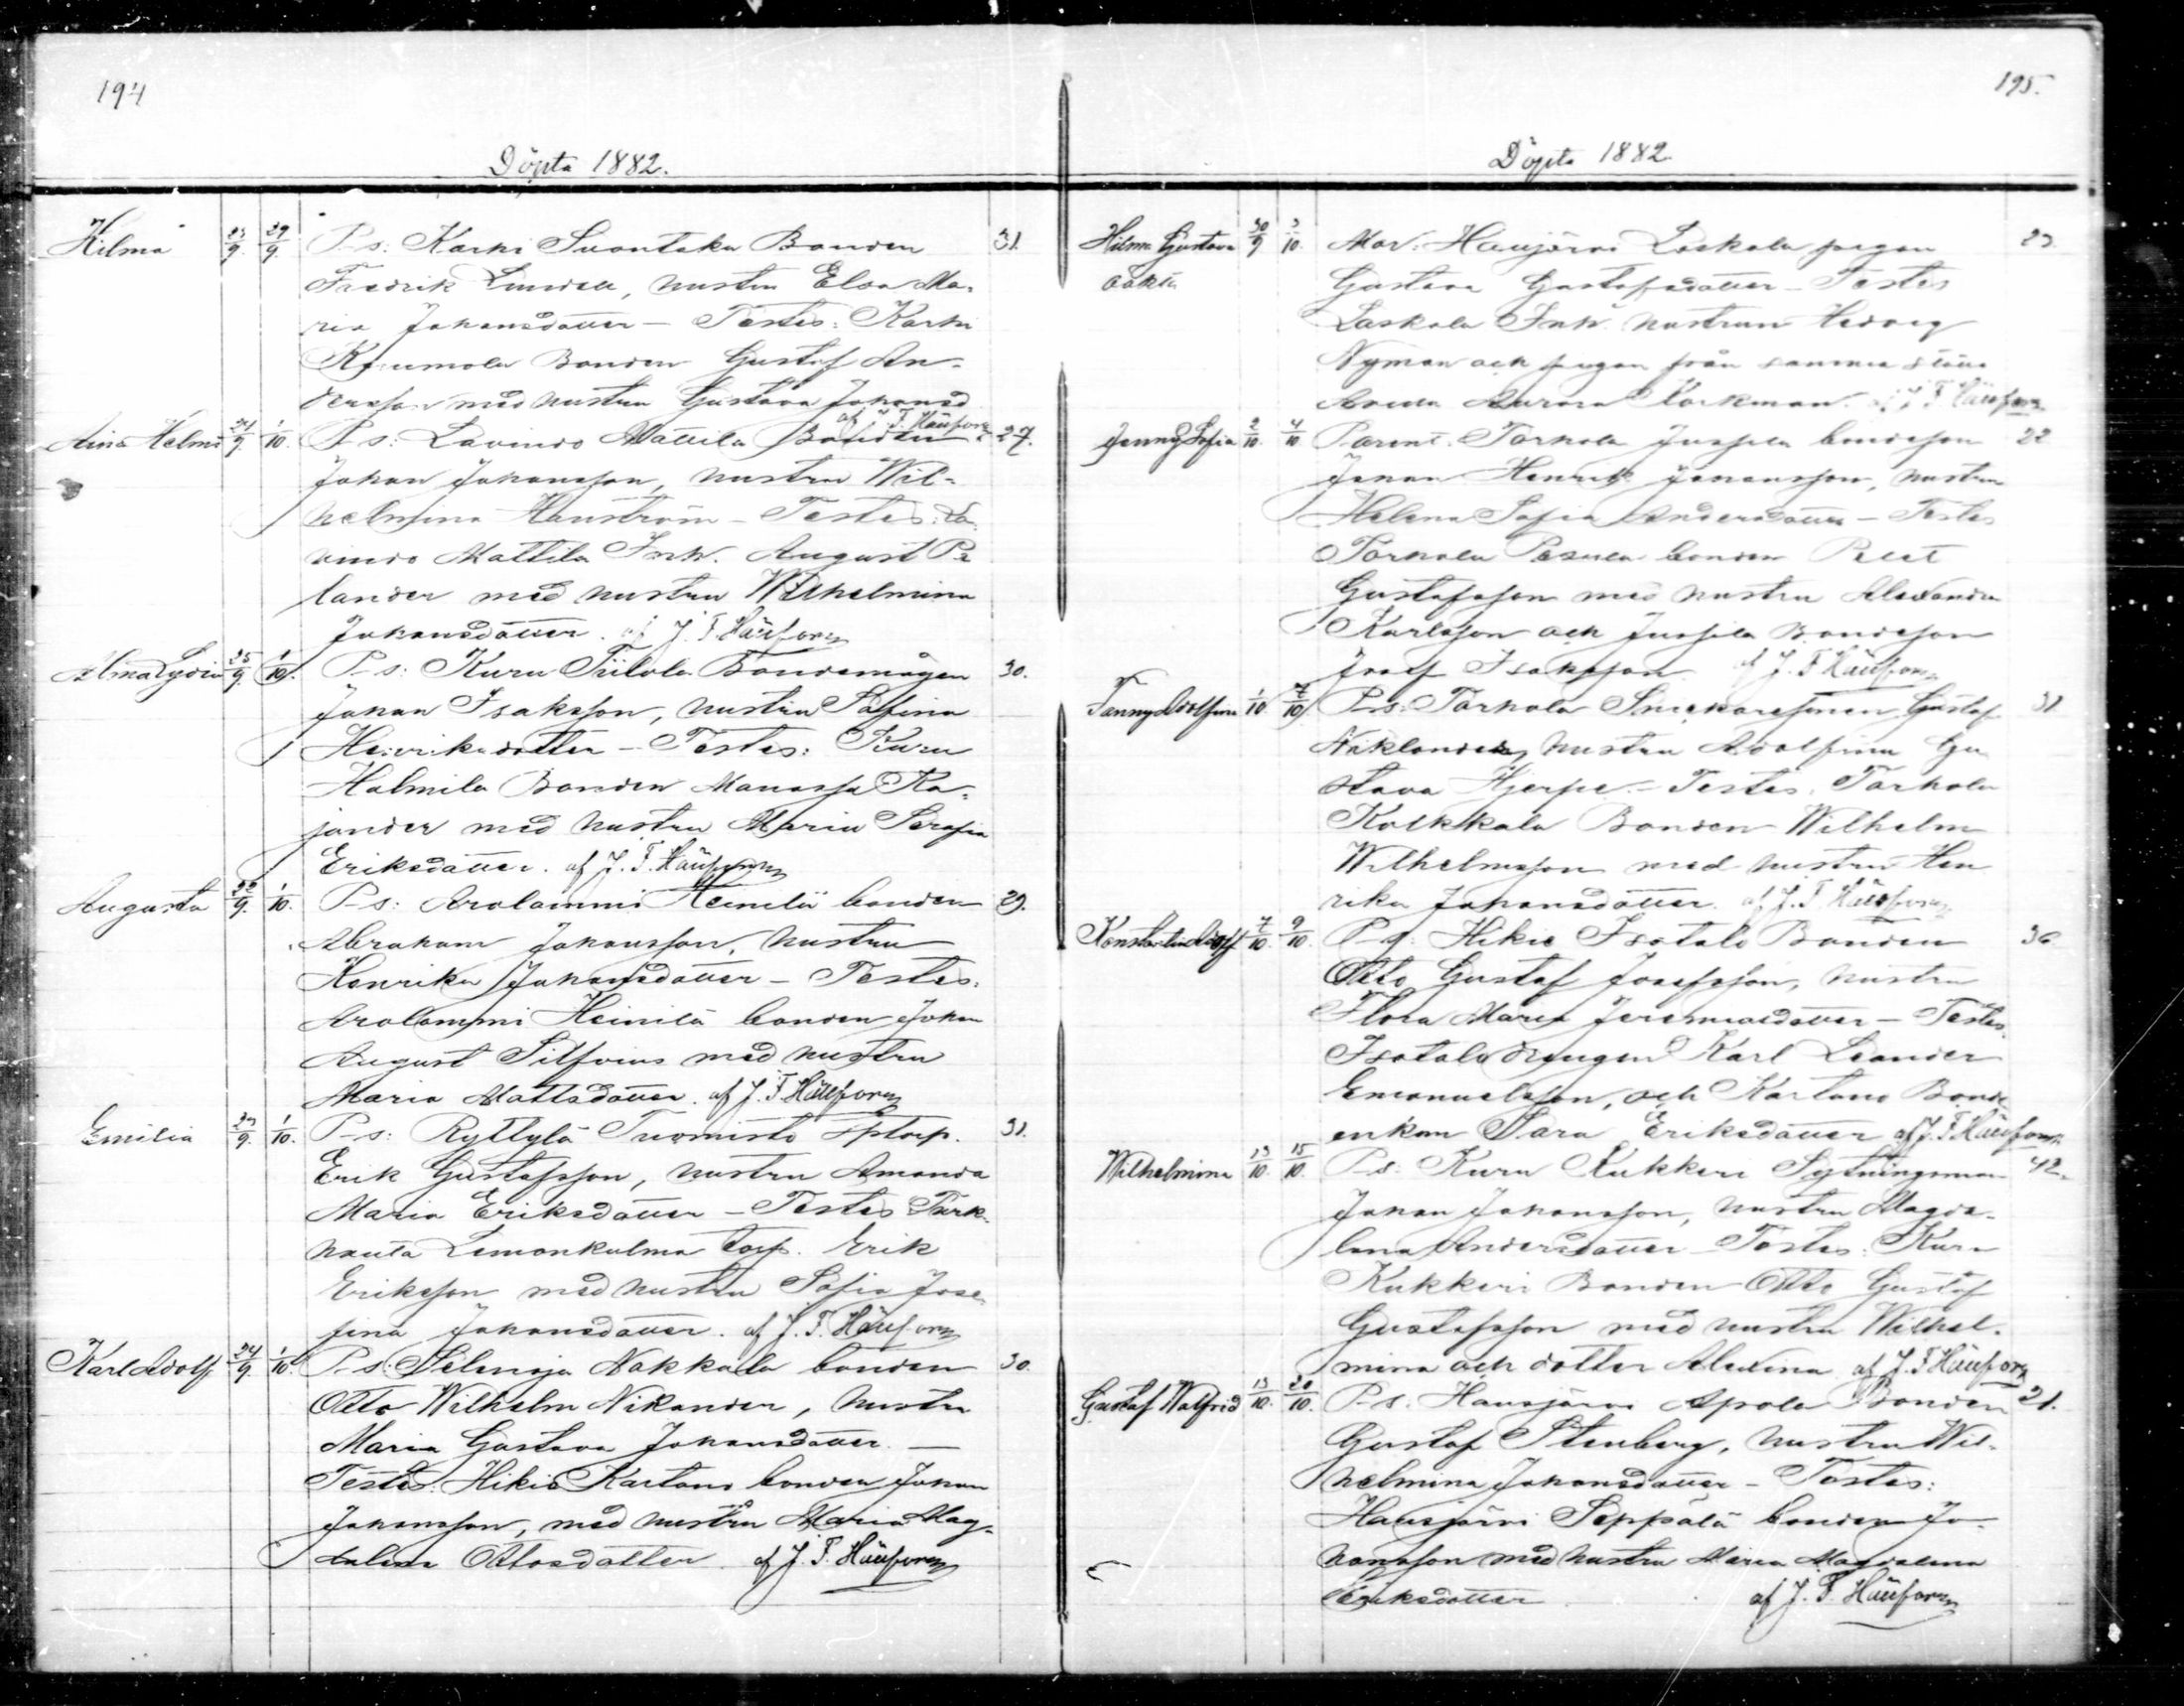 194
Döpta 1882.
Hilma 23/9. 29/9. P-s: Karhi Suontaka Bonden 31.
Fredrik Lundell, hustru Elva Ma-
ria Johansdotter – Testes: Karhi
Bonden Gustaf An-
dersson med hustru Gustava Johansd.
af J. F. Häuforz
Aina Helmi 21/9. 1/10. P-s: Lavindo Mattila Bonden 27.
Johan Johansson, hustru Wil-
helmina Hanström – Testes: La-
vindo Mattila Inh. August Pe
lander med hustru Wilhelmina
Johansdotter. af J. F. Häuforz
Alma Lydia 25/9. 1/10. P-s: Kuru Tiilola Bondemågen 30.
Johan Isaksson, hustru Safina
Henriksdotter – Testes: Kuru
Halmila Bonden Manassa Ka-
jander med hustru Maria Serafia
Eriksdotter. af J. F. Häuforz
Augusta 22/9. 1/10. P-s: Arolammi Heinilä bonden 29.
Abraham Johansson, hustru
Henrika Johansdotter – Testes:
Arolammi Heinilä bonden Johan
August Silfvius med hustru
Maria Mattsdotter. af J. F. Häuforz
Emilia 23/9. 1/10. P-s: Ryttylä Tuomisto torp. 31.
Erik Gustafsson, hustru Amanda
Maria Eriksdotter – Testes Turk-
hauta Lemonkulma torp. Erik
Eriksson med hustru Sofia Jose
fina Johansdotter. af J. F. Häuforz
Karl Adolf 24/9. 1/10. P-s: Selenoja Nakkala bonden 30.
Otto Wilhelm Nikander, hustru
Maria Gustava Johansdotter. –
Testes: Hikiä Kartano bonden Johan
Johansson, med hustru Maria Mag-
dalena Ottosdotter. af J. F. Häuforz
195.
Döpta 1882.
Hilma Gustava 30/9 3/10. Mor: Hausjärvi Laskala pigan 23.
oäkta Gustava Gustafsdotter – Testes
Laskala Inh. hustrun Hedvig
Nyman och pigan från samma ställe
Aurora Korkman. af J. F. Häuforz
Jenny Sofia 2/10. 4/10 Parent. Torhola Jussila bondeson 22
Johan Henrik Johansson, hustru
Helena Sofia Andersdotter – Testes
Torhola Pesula bonden
Gustafsson med hustru Alexandra
Karlsson och Jussila Bondeson
Josef Isaksson af J. F. Häuforz
Fanny Adolfina 1/10 7/10 P-s: Torhola Snickaresmen Gustaf 31
Niklander, hustru Adolfina Gu
stava Hjerpe. – Testes. Torhola
Kolkkala Bonden Wilhelm
Wilhelmsson med hustru Hen
rika Johansdotter. af J. F. Häuforz
Konstantin Adolf 7/10. 9/10. P-s: Hikiä Isotalo Bonden 36
Otto Gustaf Josefsson, hustru
Flora Maria Jeremiasdotter – Testes.
Isotalo drengen Karl Leander
Emanuelsson, och Kartano Bonde
enkan Sara Eriksdotter af J. F. Häuforz
Wilhelmina 13/10. 15/10. P-s: Kuru Kukkeri Sytningsman 42.
Johan Johansson, hustru Magda-
lena Andersdotter – Testes. Kuru
Kukkeri Bonden Otto Gustaf
Gustafsson med hustru Wilhel-
mina och dotter Alexina af J. F. Häuforz
Gustaf Walfrid 13/10. 20/10. P-s. Hausjärvi Apola Bonden 21.
Gustaf Stenberg, hustru Wil-
helmina Johansdotter – Testes:
Hausjärvi Seppälä bonden Jo-
hansson med hustru Maria Magdalena
Eriksdotter af J. F. Häuforz